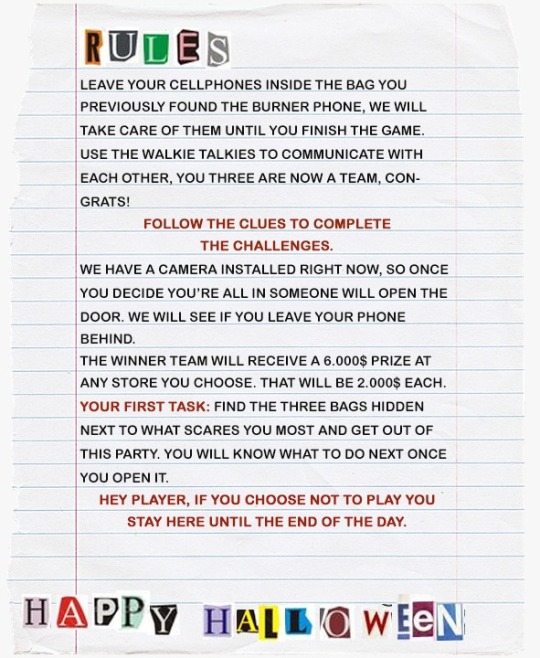 RULES
LEAVE YOUR CELLPHONES INSIDE THE BAG YOU
PREVIOUSLY FOUND THE BURNER PHONE, WE WILL
TAKE CARE OF THEM UNTIL YOU FINISH THE GAME.
USE THE WALKIE TALKIES TO COMMUNICATE WITH
EACH OTHER, YOU THREE ARE NOW A TEAM, CON-
GRATS!
FOLLOW THE CLUES TO COMPLETE
THE CHALLENGES.
WE HAVE A CAMERA INSTALLED RIGHT NOW, SO ONCE
YOU DECIDE YOU'RE ALL IN SOMEONE WILL OPEN THE
DOOR. WE WILL SEE IF YOU LEAVE YOUR PHONE
BEHIND.
THE WINNER TEAM WILL RECEIVE A 6.000$ PRIZE AT
ANY STORE YOU CHOOSE. THAT WILL BE 2.000$ EACH.
YOUR FIRST TASK: FIND THE THREE BAGS HIDDEN
NEXT TO WHAT SCARES YOU MOST AND GET OUT OF
THIS PARTY. YOU WILL KNOW WHAT TO DO NEXT ONCE
YOU OPEN IT.
HEY PLAYER, IF YOU CHOOSE NOT TO PLAY YOU
STAY HERE UNTIL THE END OF THE DAY.
HAPPY HALLOWEEN